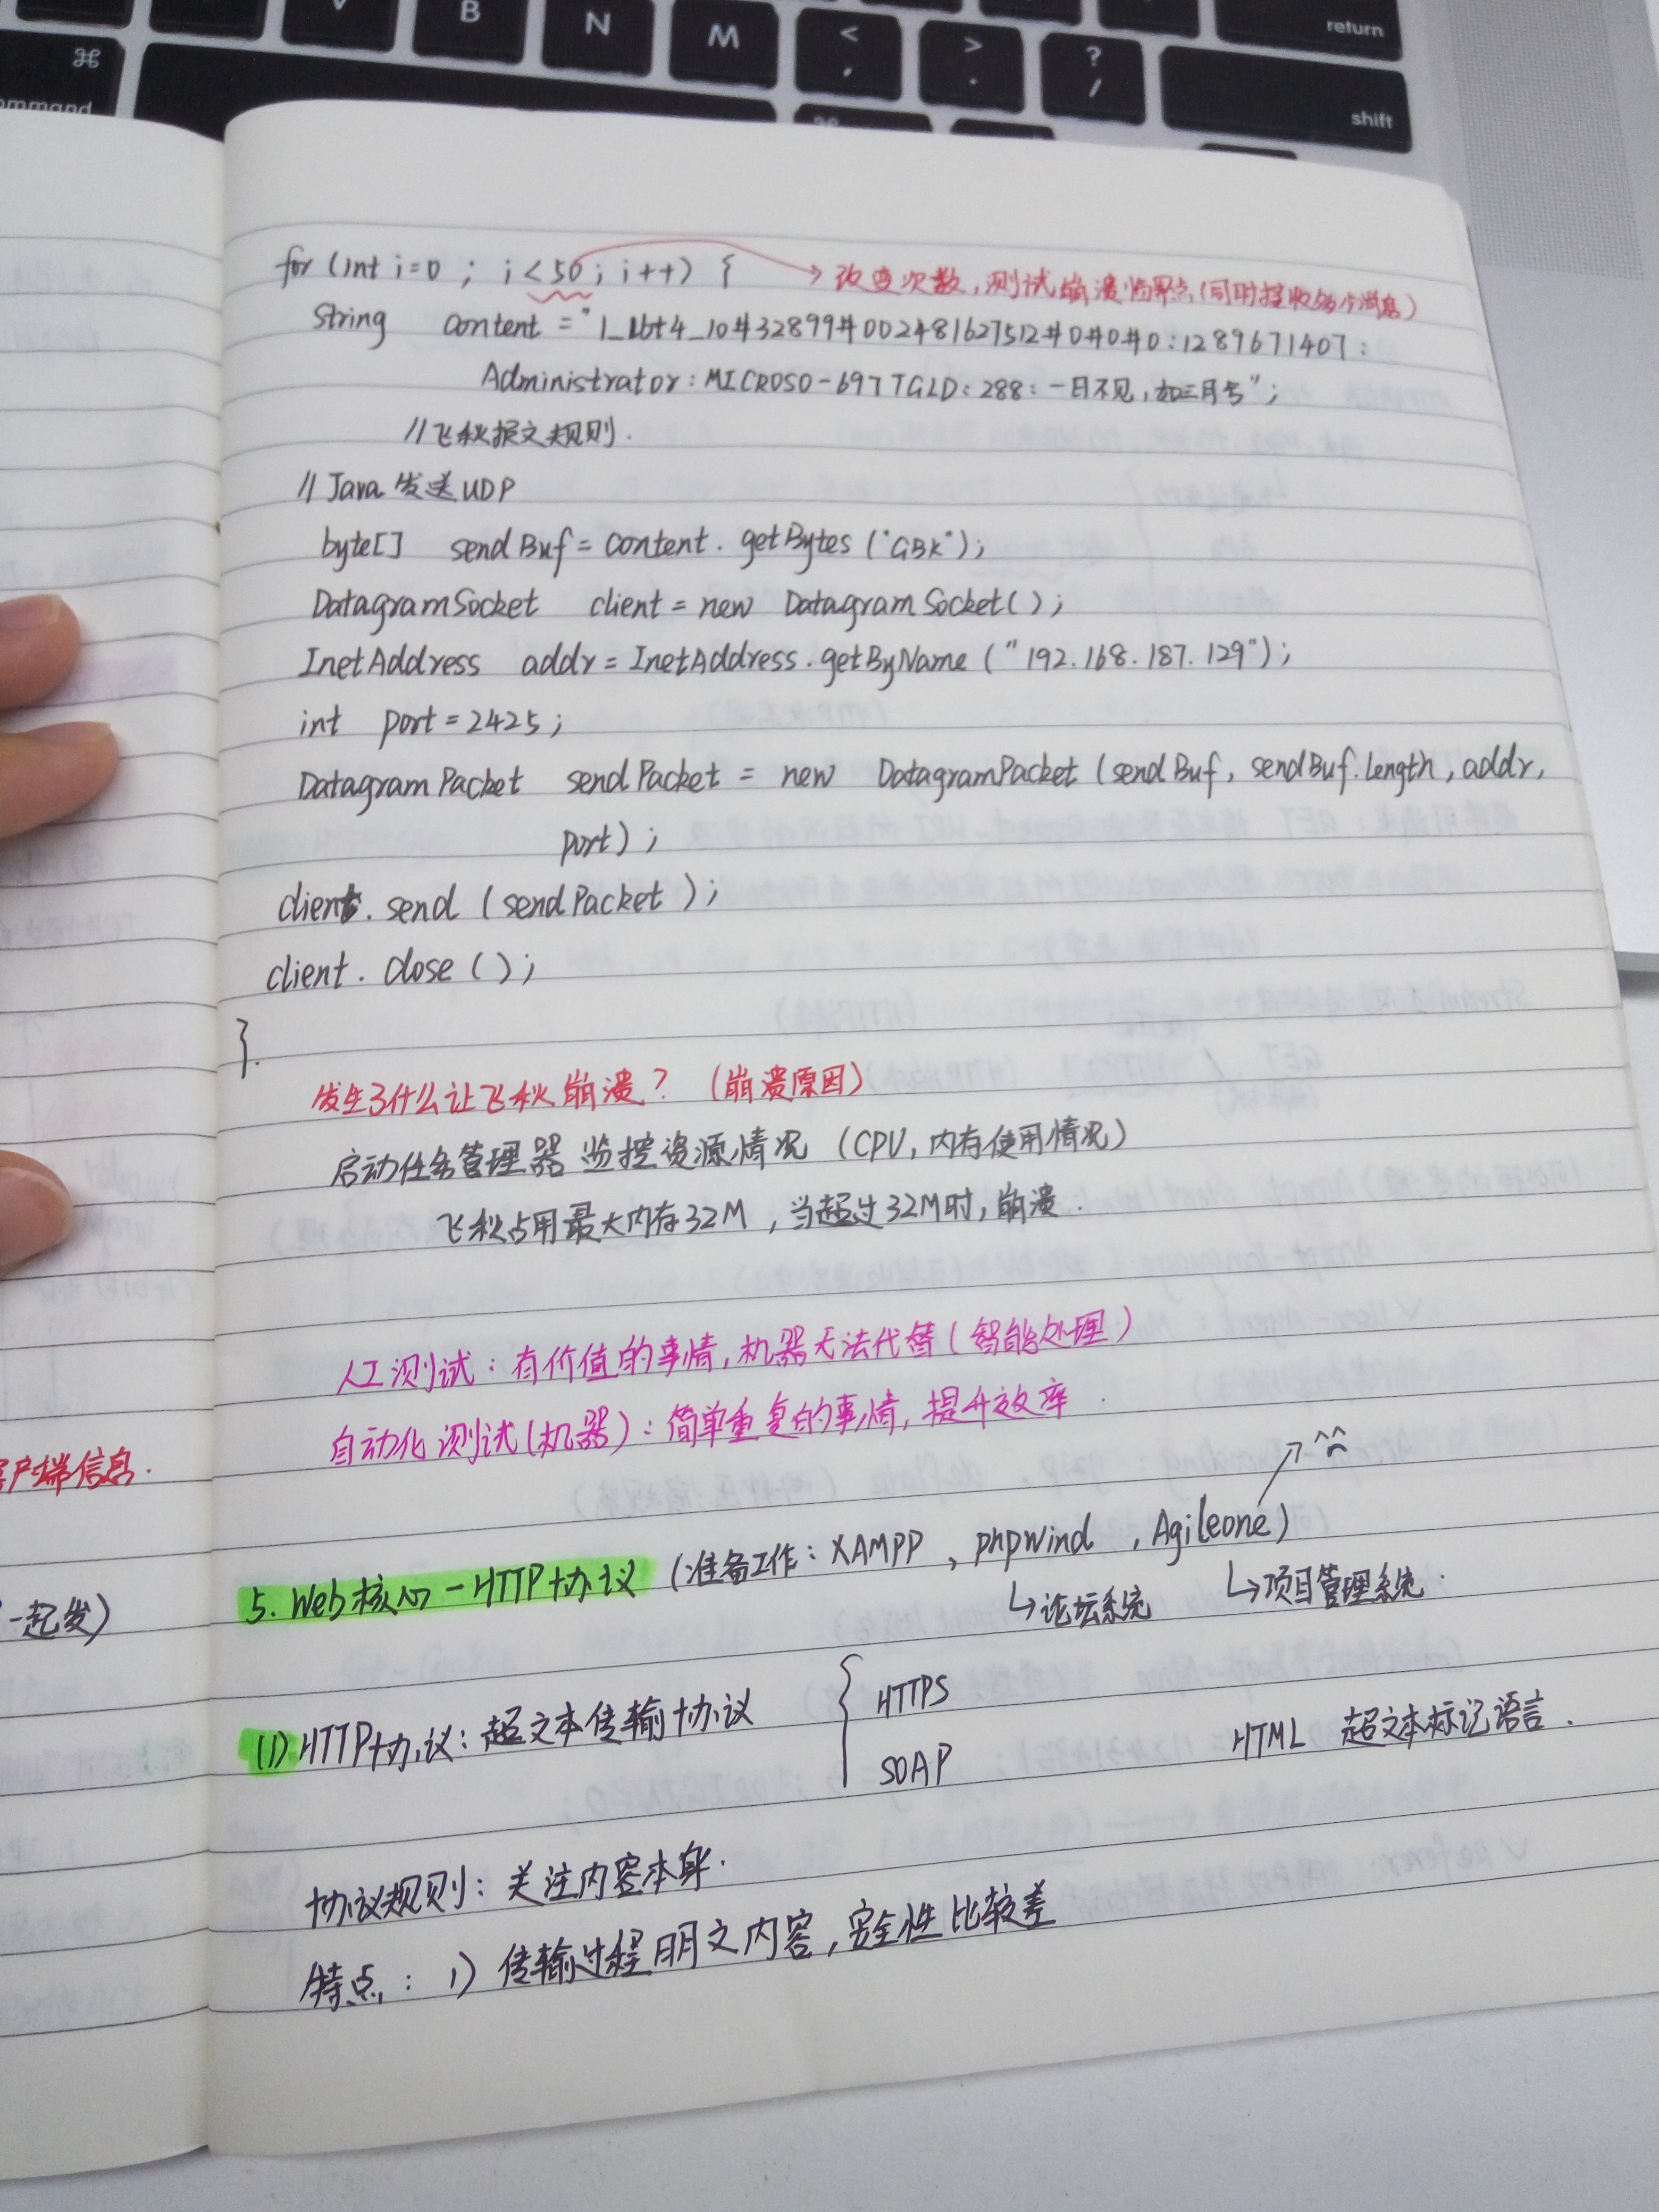 B
N
M
<
,
>
.
?
/
return
⌘
command
shift
for (int i=0 ; i<50; i++) { → 改变次数,测试崩溃临界点(同时接收多少消息)
String content = "1_lbt4_10#32899#002481627512#0#0#0:1289671407:
Administrator:MICROSO-697TGLD:288:一日不见,如三月兮";
//飞秋报文规则.
// Java 发送UDP
byte[] sendBuf = content.getBytes("GBK");
DatagramSocket client = new DatagramSocket();
InetAddress addr = InetAddress.getByName("192.168.187.129");
int port = 2425;
DatagramPacket sendPacket = new DatagramPacket(sendBuf, sendBuf.length, addr,
port);
client.send(sendPacket);
client.close();
}.
发生了什么让飞秋崩溃? (崩溃原因)
启动任务管理器 监控资源情况 (CPU,内存使用情况)
飞秋占用最大内存32M,当超过32M时,崩溃.
人工测试:有价值的事情,机器无法代替(智能处理)
自动化测试(机器):简单重复的事情,提升效率.
客户端信息.
5. Web核心-HTTP协议 (准备工作:XAMPP、phpwind,Agileone)
↳论坛系统 ↳项目管理系统.
一起发)
(1) HTTP协议:超文本传输协议 { HTTPS
SOAP
HTML 超文本标记语言.
协议规则:关注内容本身.
特点:1) 传输过程明文内容,安全性比较差